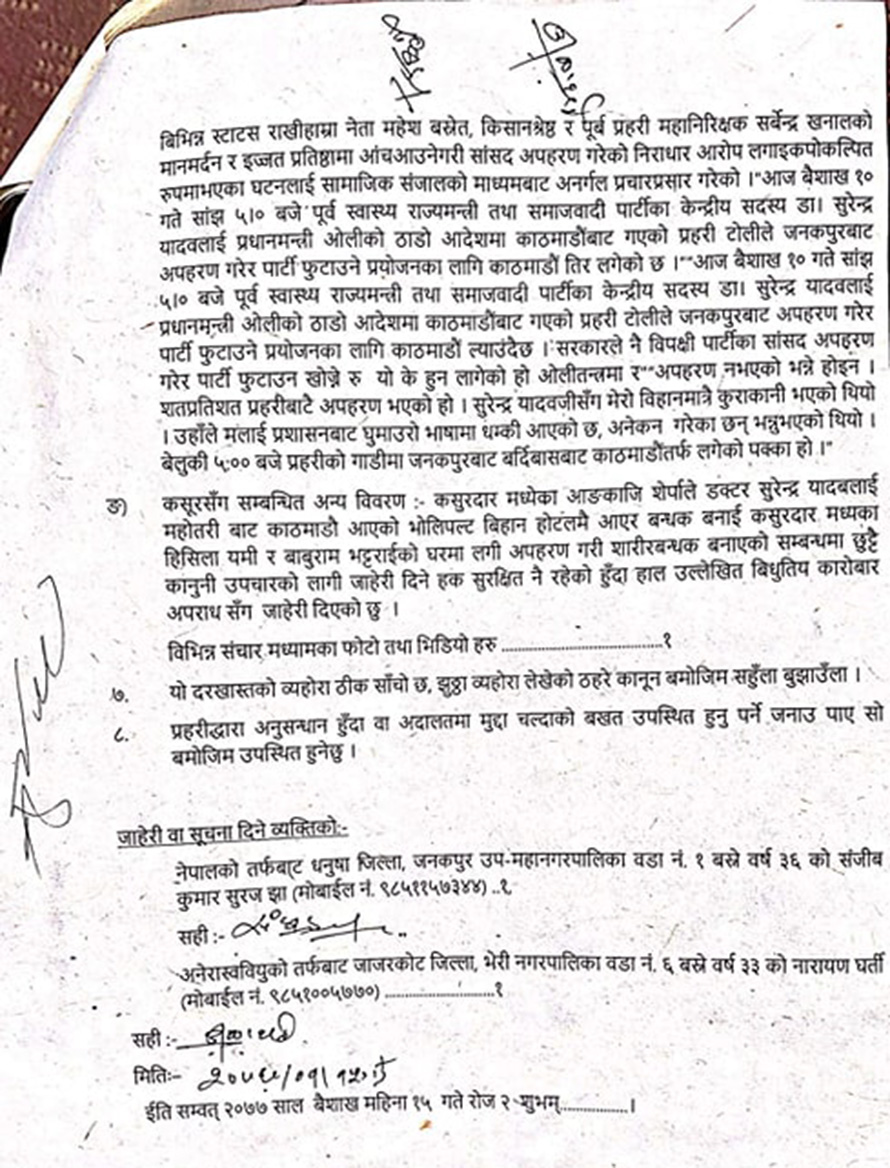 बिभिन्न स्टाटस राखीहाम्रा नेता महेश बस्नेत, किसानश्रेष्ठ र पूर्ब प्रहरी महानिरिक्षक सर्बेन्द्र खनालको
मानमर्दन र इज्जत प्रतिष्ठामा आंचआउनेगरी सांसद अपहरण गरेको निराधार आरोप लगाइकपोकल्पित
रुपमाभएका घटनलाई सामाजिक संजालको माध्यमबाट अनर्गल प्रचारप्रसार गरेको ।"आज बैशाख १०
गते सांझ ५।० बजे पूर्व स्वास्थ्य राज्यमन्त्री तथा समाजवादी पार्टीका केन्द्रीय सदस्य डा। सुरेन्द्र
यादवलाई प्रधानमन्त्री ओलीको ठाडो आदेशमा काठमाडौंबाट गएको प्रहरी टोलीले जनकपुरबाट
अपहरण गरेर पार्टी फुटाउने प्रयोजनका लागि काठमाडौं तिर लगेको छ ।""आज बैशाख १० गते सांझ
५।० बजे पूर्व स्वास्थ्य राज्यमन्त्री तथा समाजवादी पार्टीका केन्द्रीय सदस्य डा। सुरेन्द्र यादवलाई
प्रधानमन्त्री ओलीको ठाडो आदेशमा काठमाडौंबाट गएको प्रहरी टोलीले जनकपुरबाट अपहरण गरेर
पार्टी फुटाउने प्रयोजनका लागि काठमाडौं ल्याउंदैछ । सरकारले नै विपक्षी पार्टीका सांसद अपहरण
गरेर पार्टी फुटाउन खोज्ने रु यो के हुन लागेको हो ओलीतन्त्रमा र""अपहरण नभएको भन्ने होइन ।
शतप्रतिशत प्रहरीबाटै अपहरण भएको हो । सुरेन्द्र यादवजीसँग मेरो विहानमात्रै कुराकानी भएको थियो
। उहाँले मलाई प्रशासनबाट घुमाउरो भाषामा धम्की आएको छ, अनेकन गरेका छन् भन्नुभएको थियो ।
बेलुकी ५:०० बजे प्रहरीको गाडीमा जनकपुरबाट बर्दिबासबाट काठमाडौंतर्फ लगेको पक्का हो ।"
ङ) कसूरसँग सम्बन्धित अन्य विवरण :- कसुरदार मध्येका आङकाजि शेर्पाले डक्टर सुरेन्द्र यादबलाई
महोतरी बाट काठमाडौ आएको भोलिपल्ट बिहान होटलमै आएर बन्धक बनाई कसुरदार मध्यका
हिसिला यमी र बाबुराम भट्टराईको घरमा लगी अपहरण गरी शारीरबन्धक बनाएको सम्बन्धमा छुट्टै
कानुनी उपचारको लागी जाहेरी दिने हक सुरक्षित नै रहेको हुँदा हाल उल्लेखित बिधुतिय कारोबार
अपराध सँग जाहेरी दिएको छु ।
विभिन्न संचार मध्यामका फोटो तथा भिडियो हरु ..............................१
७. यो दरखास्तको व्यहोरा ठीक साँचो छ, झुठ्ठा व्यहोरा लेखेको ठहरे कानून बमोजिम सहुँला बुझाउँला ।
८. प्रहरीद्धारा अनुसन्धान हुँदा वा अदालतमा मुद्दा चल्दाको बखत उपस्थित हुनु पर्ने जनाउ पाए सो
बमोजिम उपस्थित हुनेछु ।
जाहेरी वा सूचना दिने व्यक्तिको:-
नेपालको तर्फबाट धनुषा जिल्ला, जनकपुर उप-महानगरपालिका वडा नं. १ बस्ने वर्ष ३६ को संजीब
कुमार सुरज झा (मोबाईल नं. ९८५११५७३४४) ..१
सही :-
अनेरास्ववियुको तर्फबाट जाजरकोट जिल्ला, भेरी नगरपालिका वडा नं. ६ बस्ने वर्ष ३३ को नारायण घर्ती
(मोबाईल नं. ९८५१००५७७०) .....................१
सही :-
मितिः-
ईति सम्वत् २०७७ साल बैशाख महिना १५ गते रोज २ शुभम्.............।